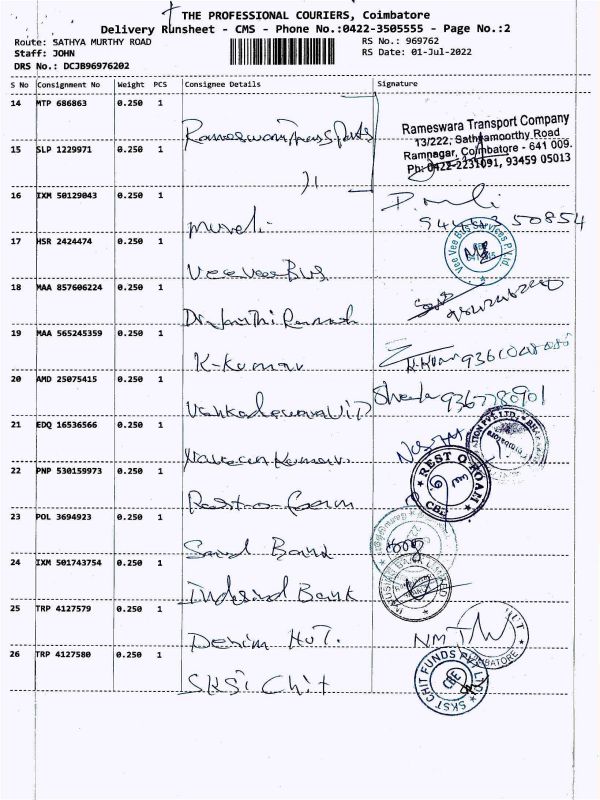 THE PROFESSIONAL COURIERS, Coimbatore
Delivery Runsheet - CMS - Phone No.:0422-3505555 - Page No.:2
Route: SATHYA MURTHY ROAD RS No.: 969762
Staff: JOHN RS Date: 01-Jul-2022
DRS No.: DCJB96976202
S No Consignment No Weight PCS Consignee Details Signature
14 MTP 686863 0.250 1
Rameswara Transports
Rameswara Transport Company
13/222, Sathyamoorthy Road
Ramnagar, Coimbatore - 641 009.
Ph: 0422-2231091, 93459 05013
15 SLP 1229971 0.250 1
16 IXM 50129043 0.250 1
Murali
17 HSR 2424474 0.250 1
Vee Vee Bus
Vee Vee Bus Services P Ltd
18 MAA 857606224 0.250 1
19 MAA 565245359 0.250 1
K-Kumar
20 AMD 25075415 0.250 1
9367780901
21 EDQ 16536566 0.250 1
Naveen Kumar.
22 PNP 530159973 0.250 1
REST O ROAM
CBE
23 POL 3694923 0.250 1
Bank
24 IXM 501743754 0.250 1
Indusind Bank
INDUSIND BANK LIMITED
25 TRP 4127579 0.250 1
Denim Hut.
COIMBATORE
26 TRP 4127580 0.250 1
SKSI Chit
SKST CHIT FUNDS PVT LTD
CBE